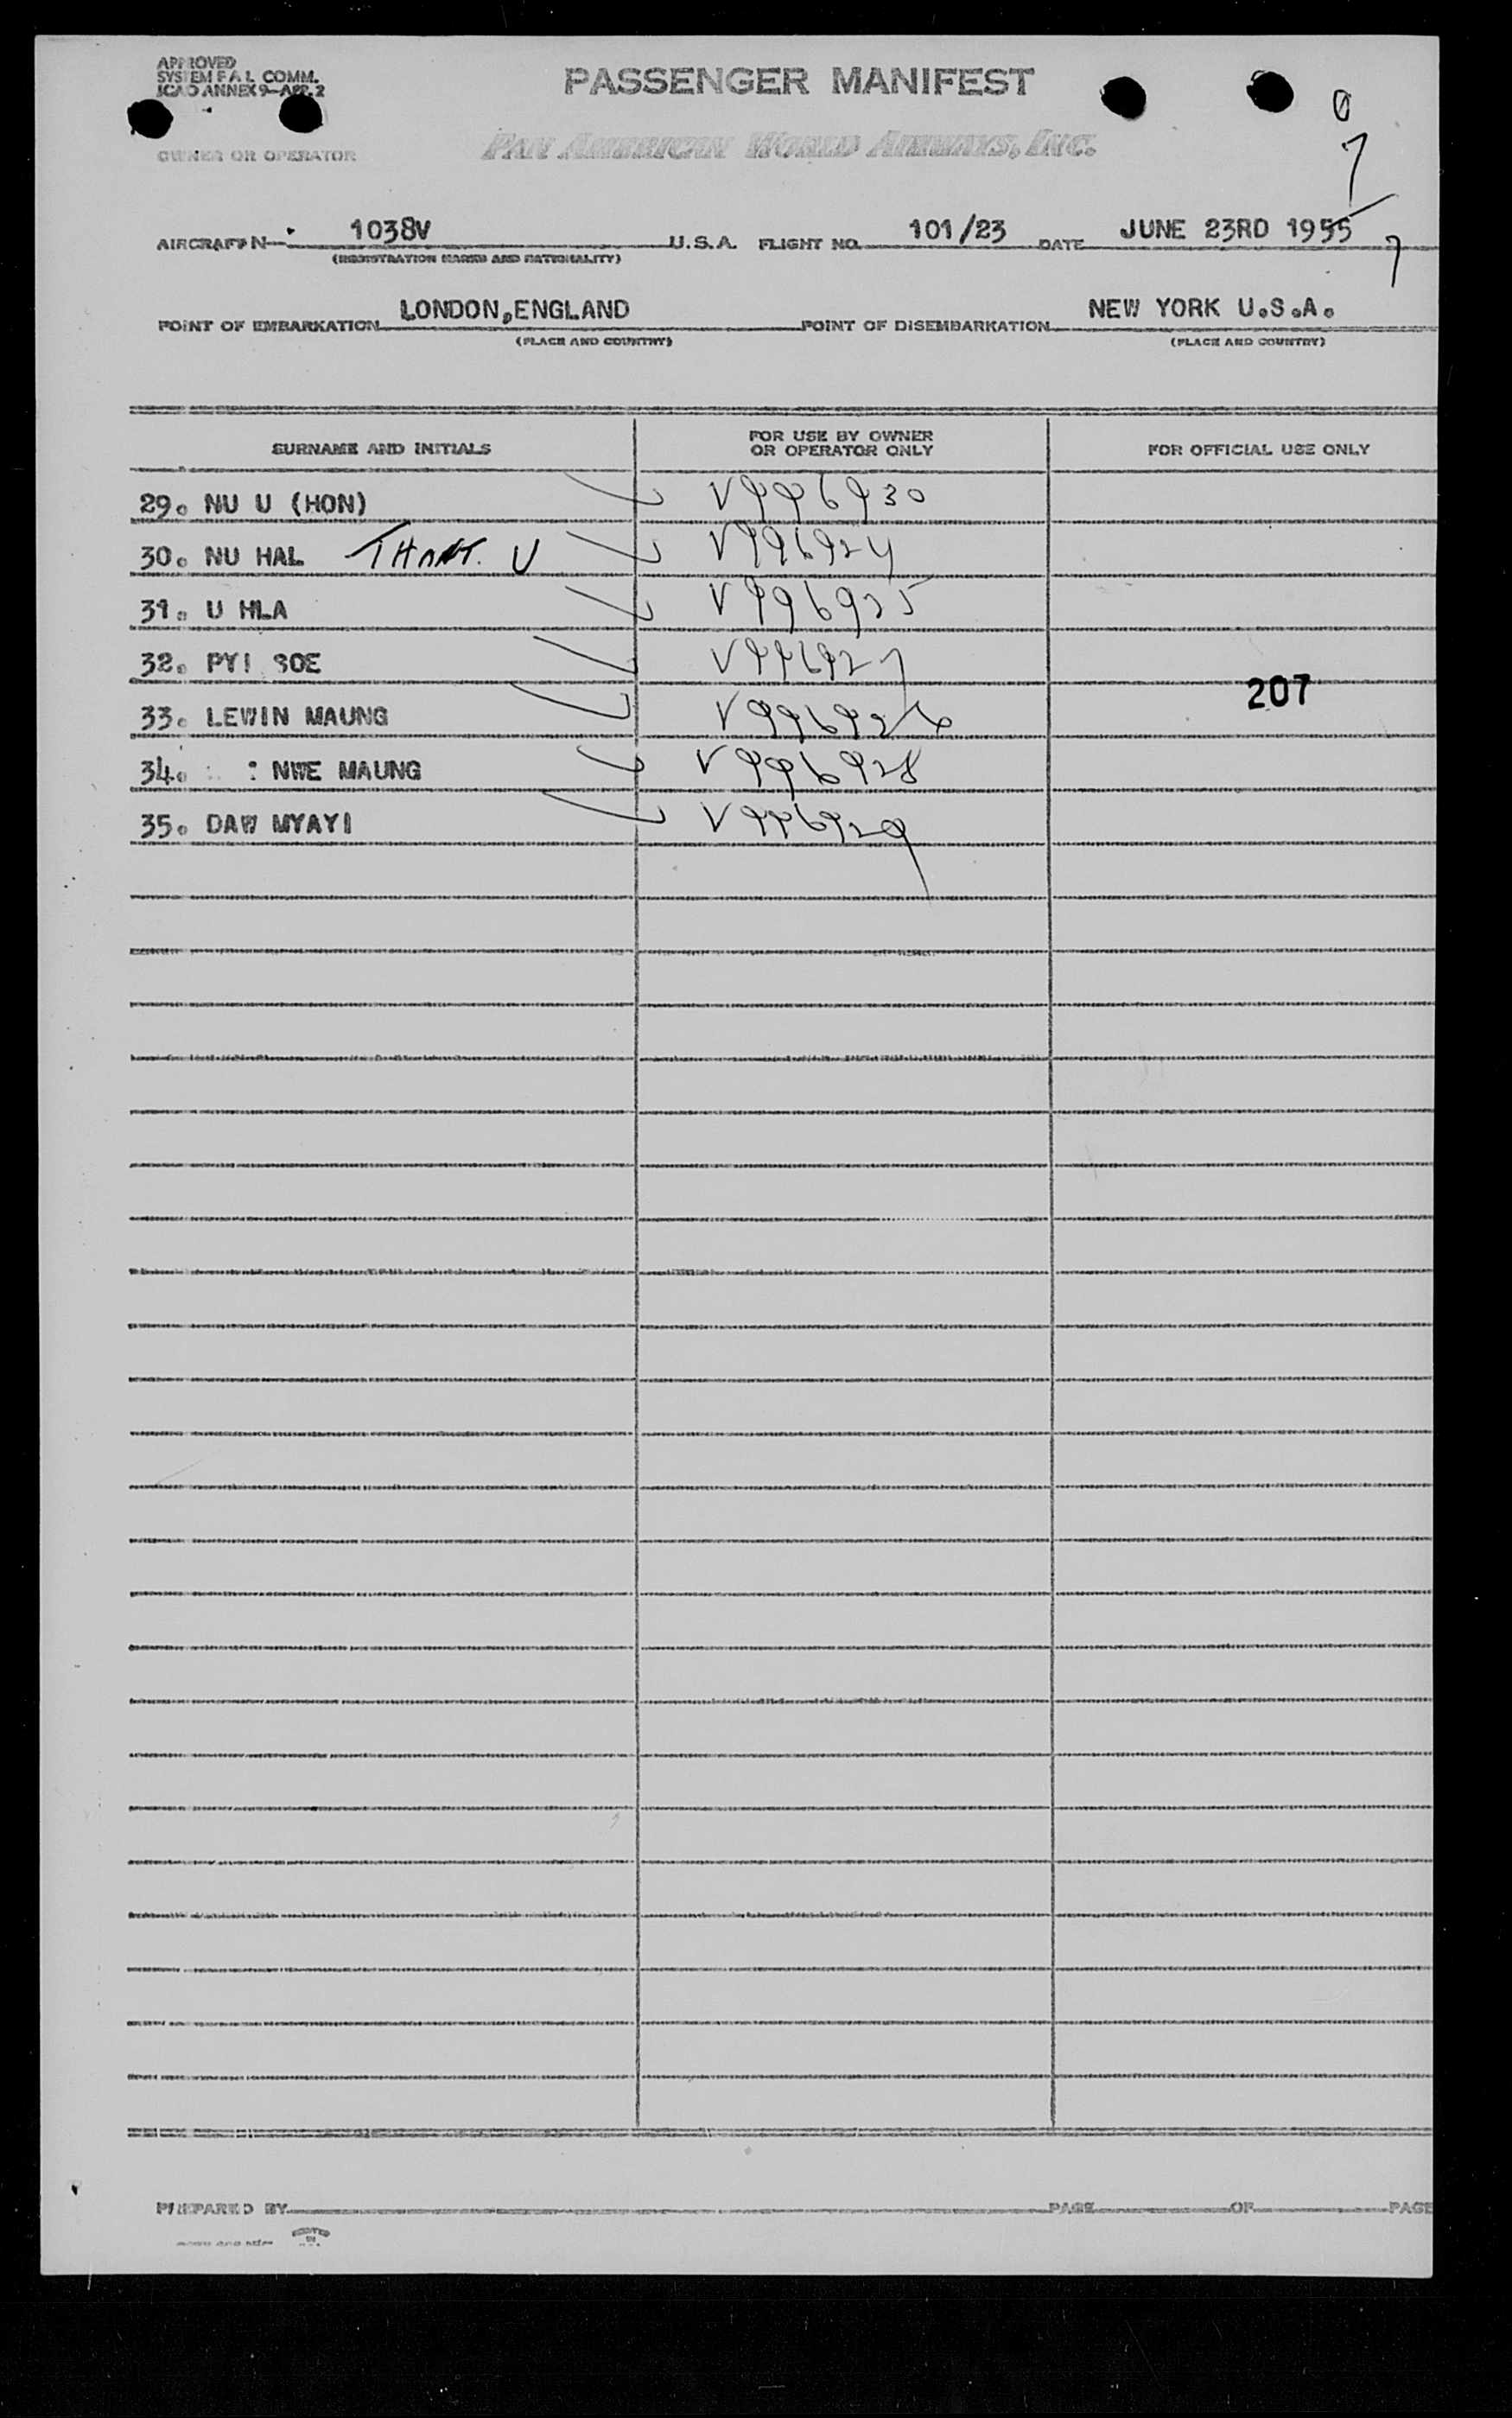 APPROVED
SYSTEM F A L COMM.
ICAO ANNEX 9-APP. 2
PASSENGER MANIFEST
0
7
7
OWNER OR OPERATOR
PAN AMERICAN WORLD AIRWAYS, INC.
AIRCRAFT N 1038V U.S.A. FLIGHT NO. 101/23 DATE JUNE 23RD 1955
(REGISTRATION MARKS AND NATIONALITY)
POINT OF EMBARKATION LONDON,ENGLAND POINT OF DISEMBARKATION NEW YORK U.S.A.
(PLACE AND COUNTRY) (PLACE AND COUNTRY)
SURNAME AND INITIALS FOR USE BY OWNER OR OPERATOR ONLY FOR OFFICIAL USE ONLY
29. NU U (HON) V996930
30. NU HAL THANT. U V996924
31. U HLA V996925
32. PYI SOE V996927
207
33. LEWIN MAUNG V996926
34. : : NWE MAUNG V996928
35. DAW MYAYI V996929
PREPARED BY PAGE OF PAGE
PRINTED IN